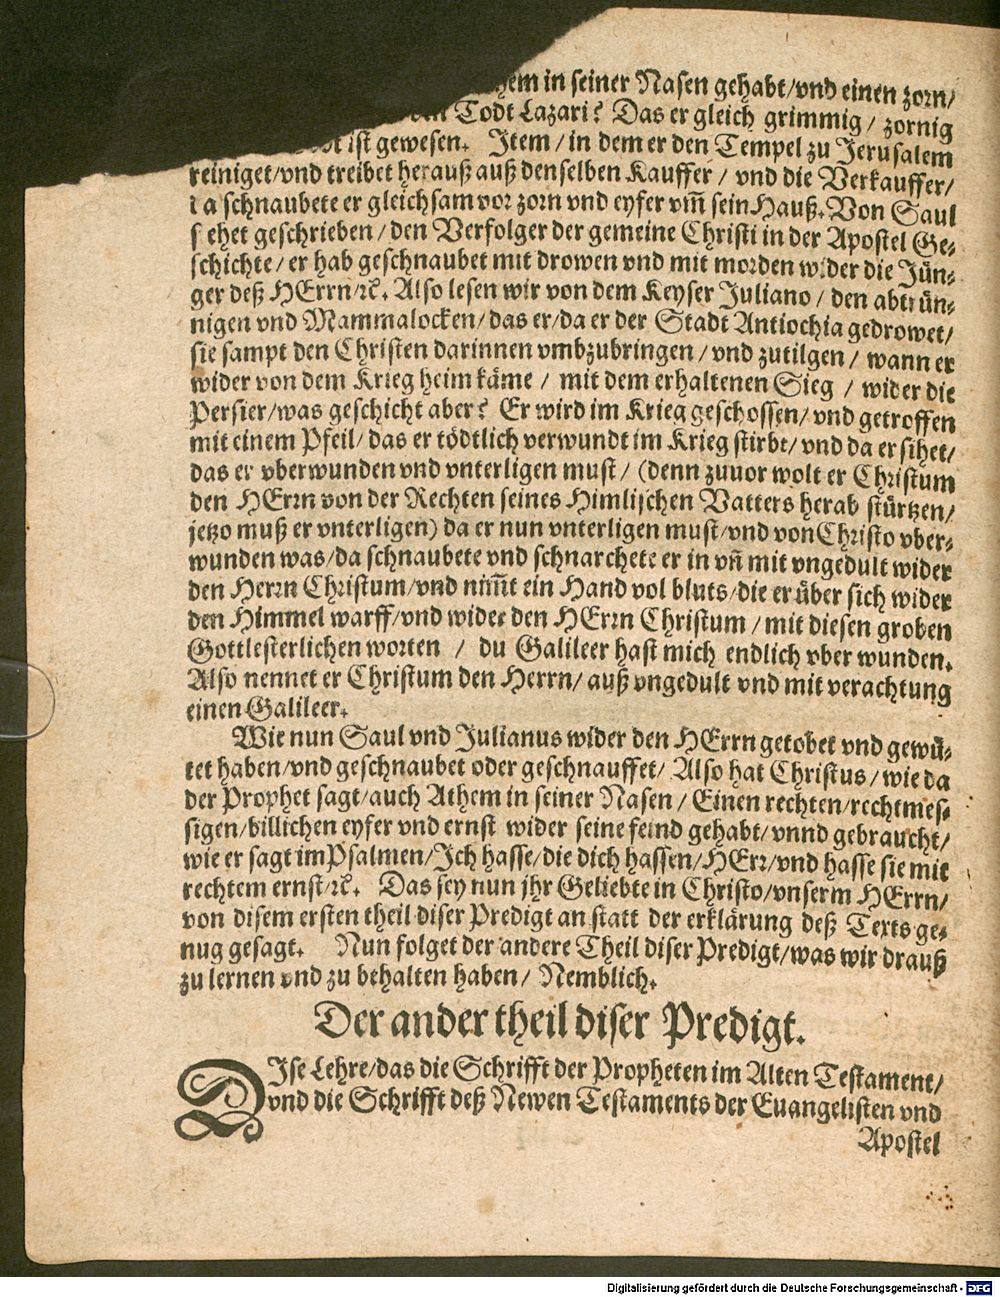 in seiner Nasen gehabt/vnd einen zorn/
Todt Lazari? Das er gleich grimmig / zornig
ist gewesen. Item / in dem er den Tempel zu Jerusalem
reiniget/vnd treibet herauß auß denselben Kauffer / vnd die Verkauffer/
da schnaubete er gleichsam vor zorn vnd eyfer vm̃ sein Hauß. Von Saul
stehet geschrieben / den Verfolger der gemeine Christi in der Apostel Ge-
schichte / er hab geschnaubet mit drowen vnd mit morden wider die Jün-
ger deß HErrn/ꝛc. Also lesen wir von dem Keyser Juliano / den abtrün-
nigen vnd Mammalocken/ das er/da er der Stadt Antiochia gedrowet/
sie sampt den Christen darinnen vmbzubringen / vnd zutilgen / wann er
wider von dem Krieg heim käme / mit dem erhaltenen Sieg / wider die
Persier/was geschicht aber? Er wird im Krieg geschossen/ vnd getroffen
mit einem Pfeil/ das er tödtlich verwundt im Krieg stirbt/ vnd da er sihet/
das er vberwunden vnd vnterligen must / (denn zuuor wolt er Christum
den HErrn von der Rechten seines Himlischen Vatters herab stürtzen/
jetzo muß er vnterligen) da er nun vnterligen must/vnd von Christo vber-
wunden was/da schnaubete vnd schnarchete er in vñ mit vngedult wider
den Herrn Christum/vnd nim̃t ein Hand vol bluts/die er über sich wider
den Himmel warff/vnd wider den HErrn Christum / mit diesen groben
Gottlesterlichen worten / du Galileer hast mich endlich vber wunden.
Also nennet er Christum den Herrn/ auß vngedult vnd mit verachtung
einen Galileer.
Wie nun Saul vnd Julianus wider den HErrn getobet vnd gewü-
tet haben/vnd geschnaubet oder geschnauffet/ Also hat Christus / wie da
der Prophet sagt/auch Athem in seiner Nasen / Einen rechten/rechtmes-
sigen/billichen eyfer vnd ernst wider seine feind gehabt/ vnnd gebraucht/
wie er sagt im Psalmen/Ich hasse/die dich hassen/HErr/vnd hasse sie mit
rechtem ernst/ꝛc. Das sey nun jhr Geliebte in Christo/vnserm HErrn/
von disem ersten theil diser Predigt an statt der erklärung deß Texts ge-
nug gesagt. Nun folget der andere Theil diser Predigt/was wir drauß
zu lernen vnd zu behalten haben/ Nemblich.
Der ander theil diser Predigt.
DIse Lehre/das die Schrifft der Propheten im Alten Testament/
vnd die Schrifft deß Newen Testaments der Euangelisten vnd
Apostel
Digitalisierung gefördert durch die Deutsche Forschungsgemeinschaft - DFG